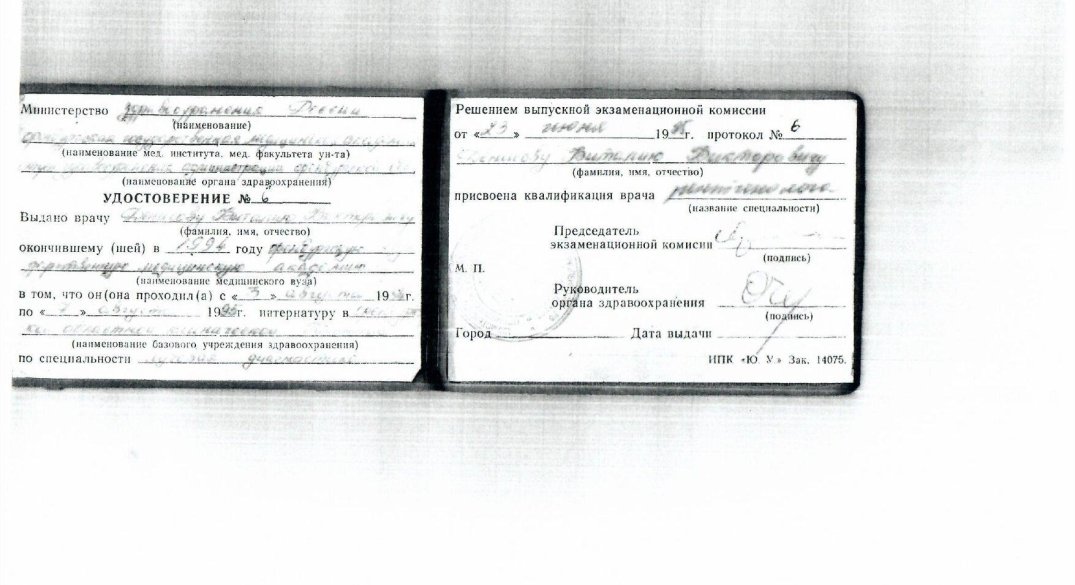 Министерство здравоохранения России
(наименование)
государственная медицинская
(наименование мед. института, мед. факультета ун-та)
администрации
(наименование органа здравоохранения)
УДОСТОВЕРЕНИЕ № 6
Выдано врачу Виталию Викторовичу
(фамилия, имя, отчество)
окончившему (шей) в 1994 году
медицинскую академию
(наименование медицинского вуза)
в том, что он(она проходил(а) с « 3 » августа 19 г.
по « » августа 1995г. интернатуру в
областной клинической
(наименование базового учреждения здравоохранения)
по специальности
Решением выпускной экзаменационной комиссии
от «23» июня 1995г. протокол № 6
Виталию Викторовичу
(фамилия, имя, отчество)
присвоена квалификация врача рентгенолога
(название специальности)
Председатель
экзаменационной комисии
(подпись)
М. П.
Руководитель
органа здравоохранения
(подпись)
Город Дата выдачи
ИПК «Ю. У.» Зак. 14075.